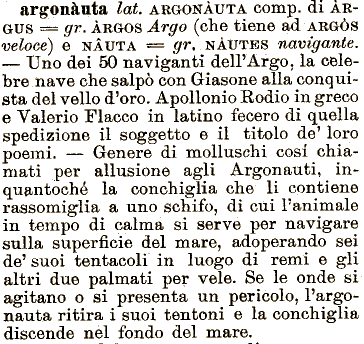 argonàuta lat. ARGONÀUTA comp. di ÀR-
GUS = gr. ÀRGOS Argo (che tiene ad ARGÒS
veloce) e NÀUTA = gr. NÀUTES navigante.
— Uno dei 50 naviganti dell'Argo, la cele-
bre nave che salpò con Giasone alla conqui-
sta del vello d'oro. Apollonio Rodio in greco
e Valerio Flacco in latino fecero di quella
spedizione il soggetto e il titolo de' loro
poemi. — Genere di molluschi cosí chia-
mati per allusione agli Argonauti, in-
quantoché la conchiglia che li contiene
rassomiglia a uno schifo, di cui l'animale
in tempo di calma si serve per navigare
sulla superficie del mare, adoperando sei
de' suoi tentacoli in luogo di remi e gli
altri due palmati per vele. Se le onde si
agitano o si presenta un pericolo, l'argo-
nauta ritira i suoi tentoni e la conchiglia
discende nel fondo del mare.